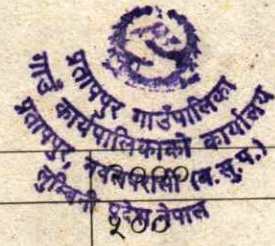 प्रतापपुर गाउँपालिका
गाउँ कार्यपालिकाको कार्यालय
प्रतापपुर, नवलपरासी (ब.सु.प.)
लुम्बिनी प्रदेश नेपाल